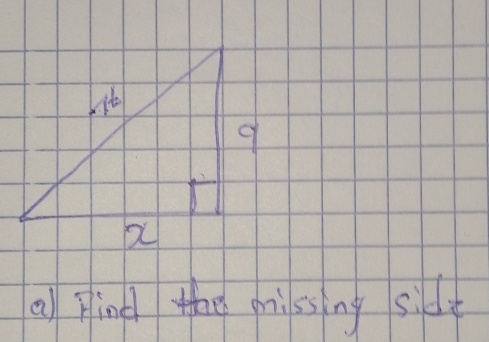 9
x
a) Find the missing side